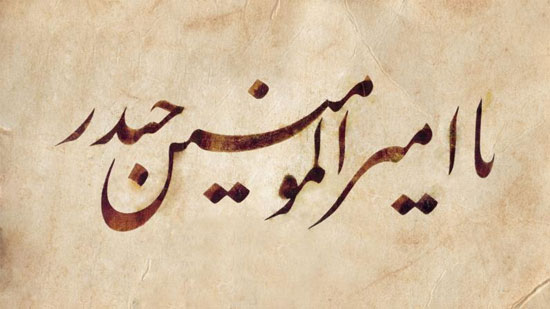 یا امیر المومنین حیدر